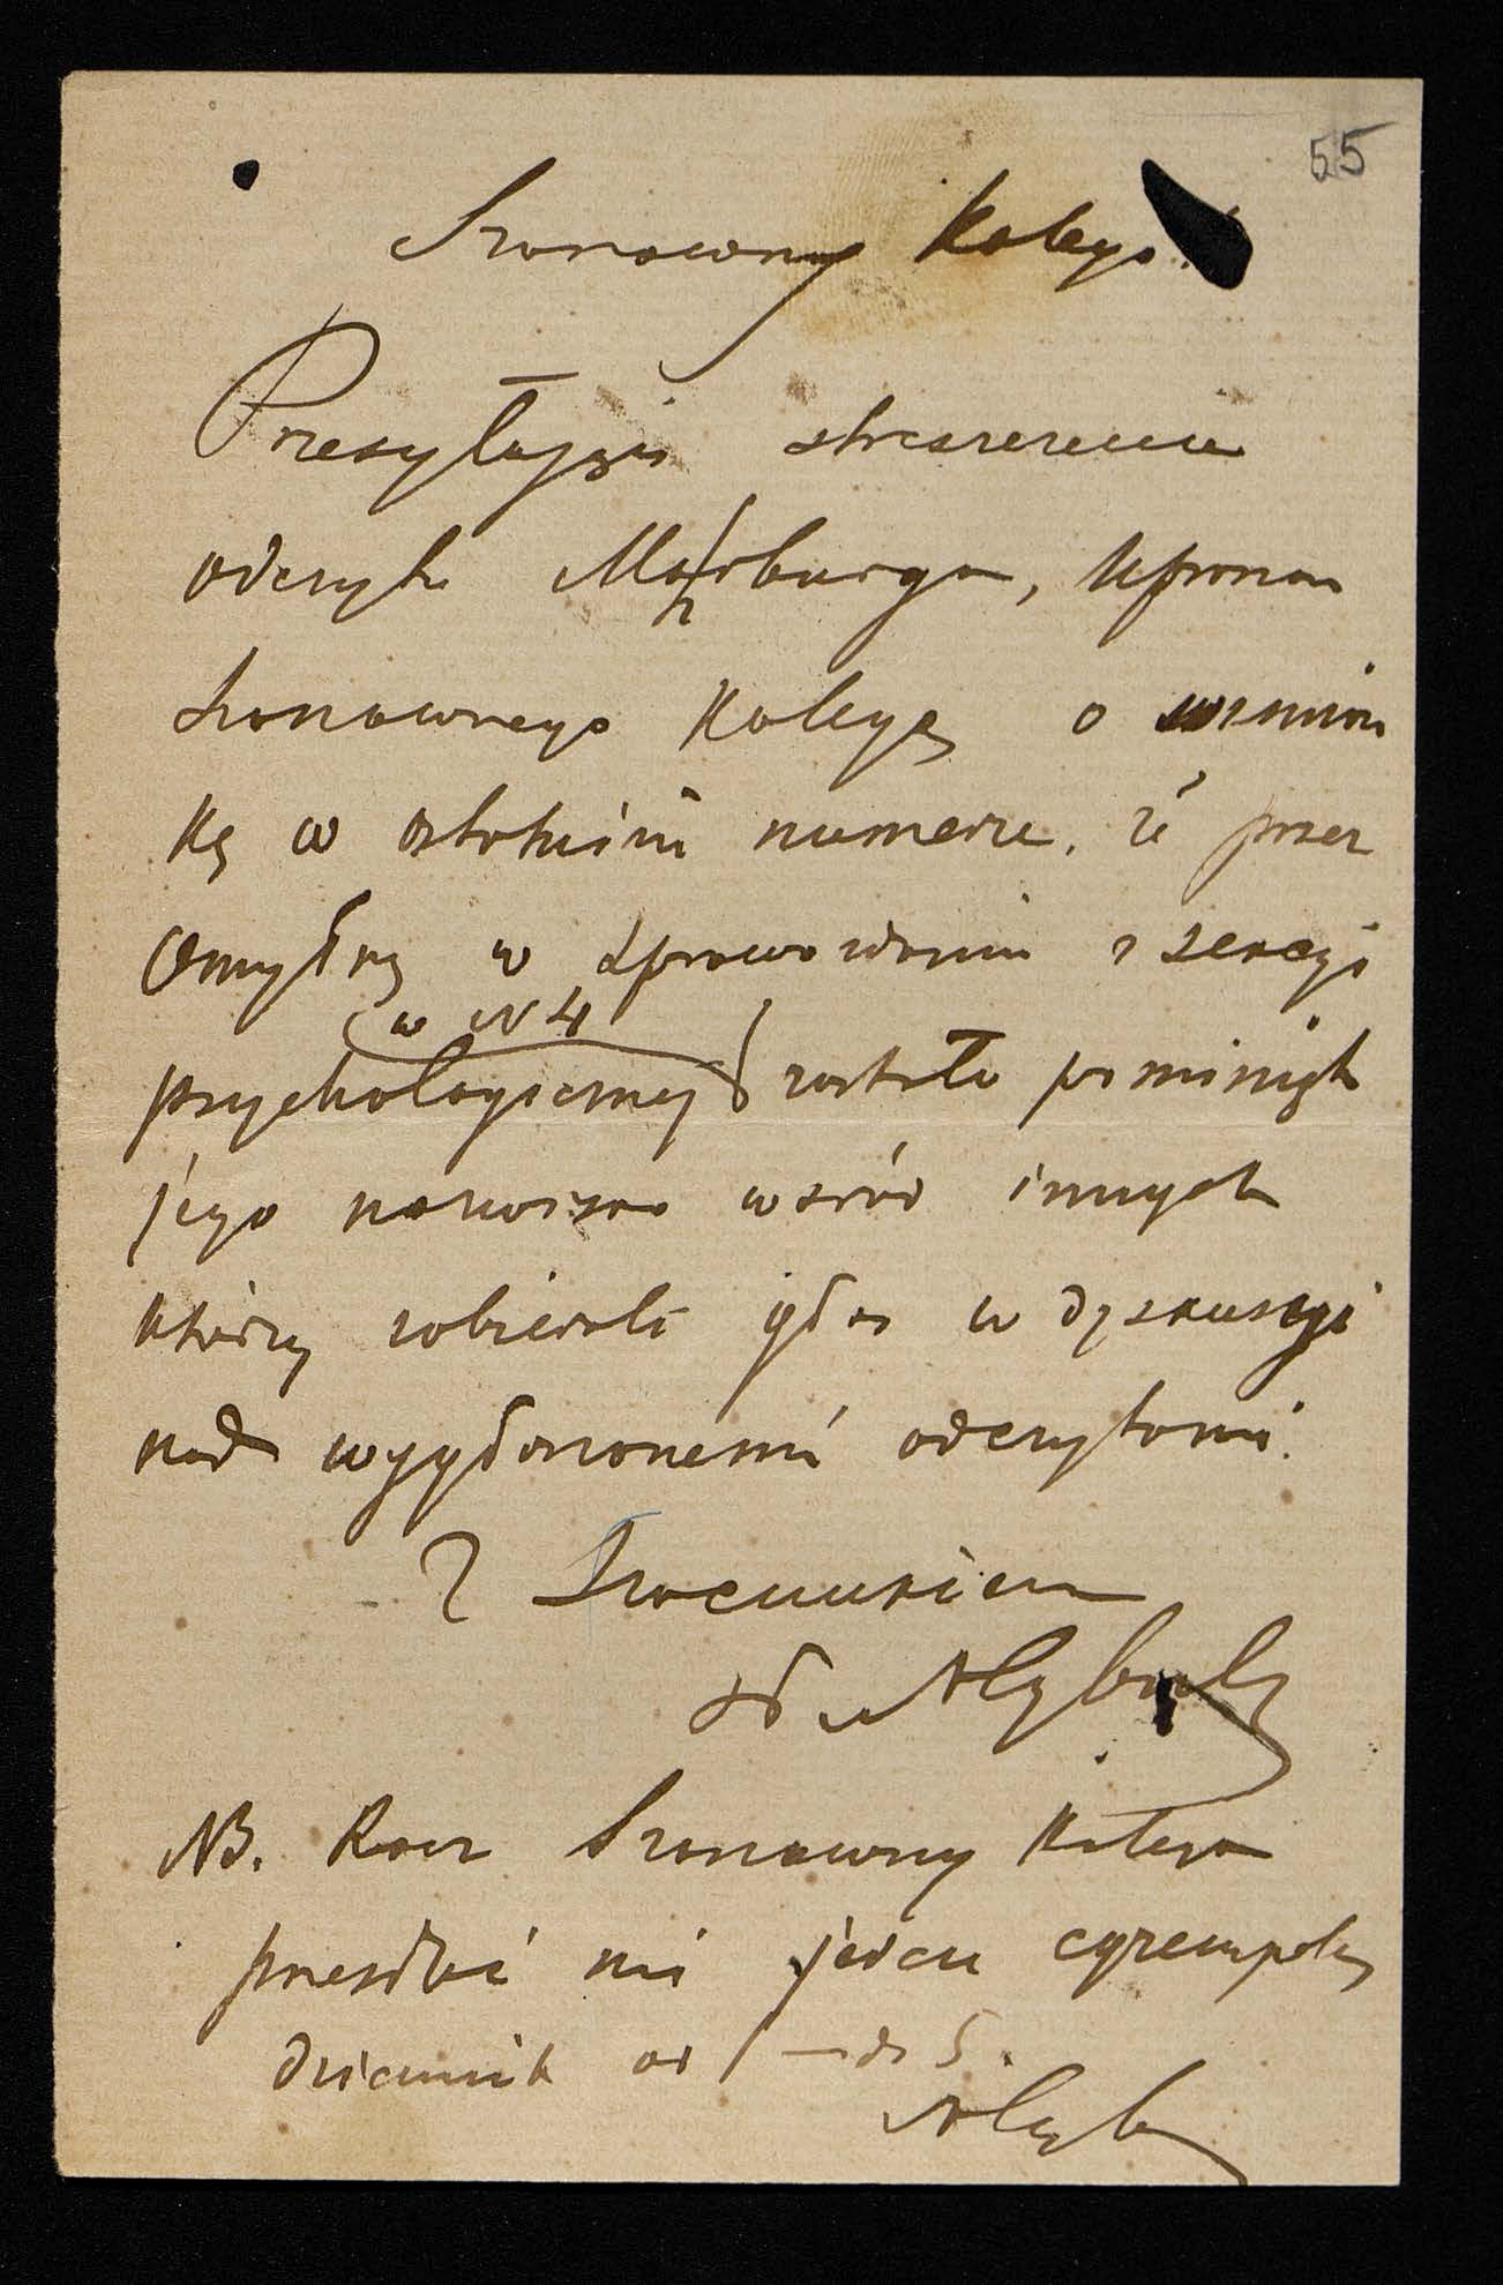 55
Szanowny Kolego!
Przesyłając streszczenie
odczytu Mahrburga, upraszam
Szanownego Kolegę o wzmian
kę w ostatnim numerze, że przez
omyłkę w sprawozdaniu z sekcyi
(w N 4
psychologicznej) zostało pominięte
jego nazwisko wśród innych
którzy zabierali głos w dyskusyi
nad wygłoszonemi odczytami.
Z szacunkiem
NB. Racz Szanowny Kolega
przesłać mi jeden egzemplarz
dziennik od 1 — do 5.